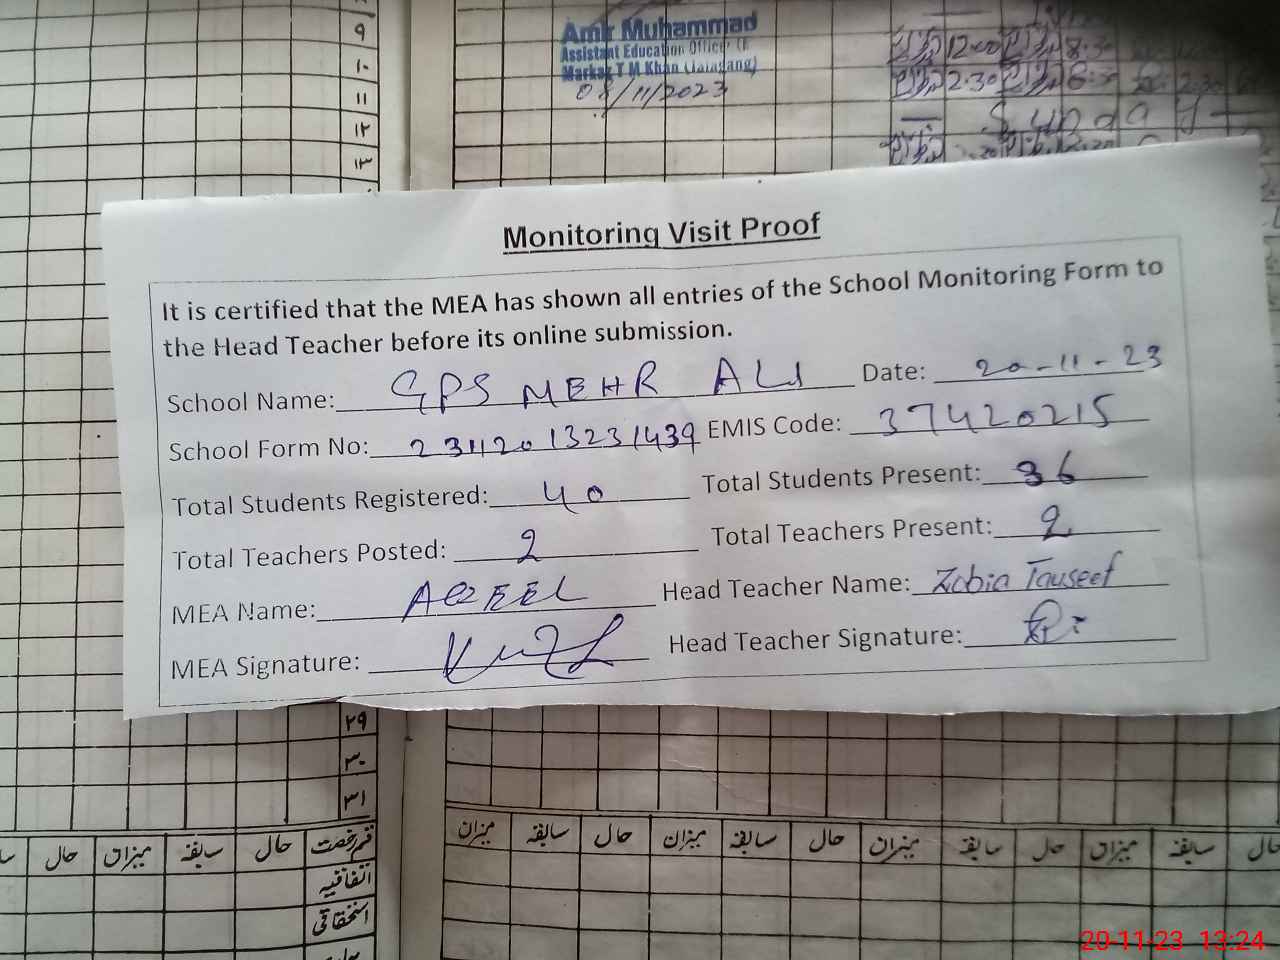 ۹
۱۰
۱۱
۱۲
۱۳
Amir Muhammad
Assistant Education Officer (E
Markaz T M Khan (Talagang)
08/11/2023
12:00 8:30
2:30 8:30 2:30
Sunday
Monitoring Visit Proof
It is certified that the MEA has shown all entries of the School Monitoring Form to
the Head Teacher before its online submission.
School Name: GPS MEHR ALI Date: 20-11-23
School Form No: 23112013231439 EMIS Code: 37420215
Total Students Registered: 40 Total Students Present: 36
Total Teachers Posted: 2 Total Teachers Present: 2
MEA Name: Head Teacher Name: Zobia Tauseef
MEA Signature: Head Teacher Signature:
۲۹
۳۰
۳۱
قسم رخصت حال سابقہ میزان حال
میزان سابقہ حال میزان سابقہ حال میزان سابقہ حال میزان سابقہ حال
اتفاقیہ
استحقاقی
20-11-23 13:24